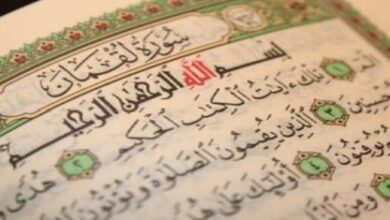 سُورَةُ لُقْمَان
بِسْمِ اللَّهِ الرَّحْمَٰنِ الرَّحِيمِ
١ تِلْكَ ءَايَٰتُ ٱلْكِتَٰبِ ٱلْحَكِيمِ ٢ هُدًى
٣ ٱلَّذِينَ يُقِيمُونَ ٱلصَّلَوٰةَ وَيُؤْتُونَ
يُوقِنُونَ ٤ أُو۟لَٰٓئِكَ عَلَىٰ
وَمِنَ